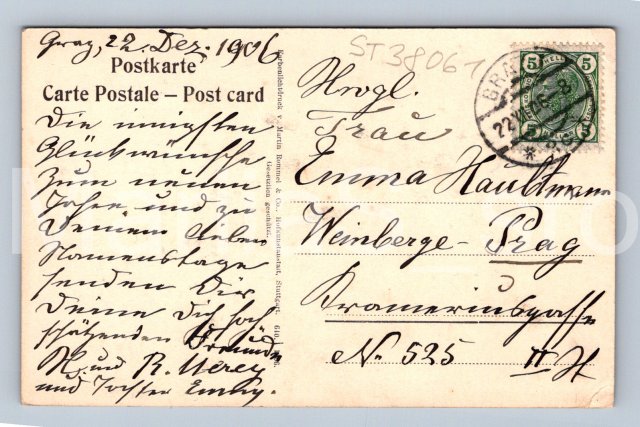 Graz, 22. Dez. 1906
Postkarte
Carte Postale – Post card
Die innigsten
Glückwünsche
zum neuen
Jahre und zu
Deinem lieben
Namenstage
senden Dir
Deine Dich hoch
schätzenden Freunde
N. und R.
und Tochter Emmy.
Farbenlichtdruck v. Martin Rommel & Co., Hofkunstanstalt, Stuttgart.
Gesetzlich geschützt.
ST38061
Frau
Emma Haultmann
Weinberge - Prag
Krameriusgasse
No 525 II H
5 5
5 5
GRAZ
22 XII 06